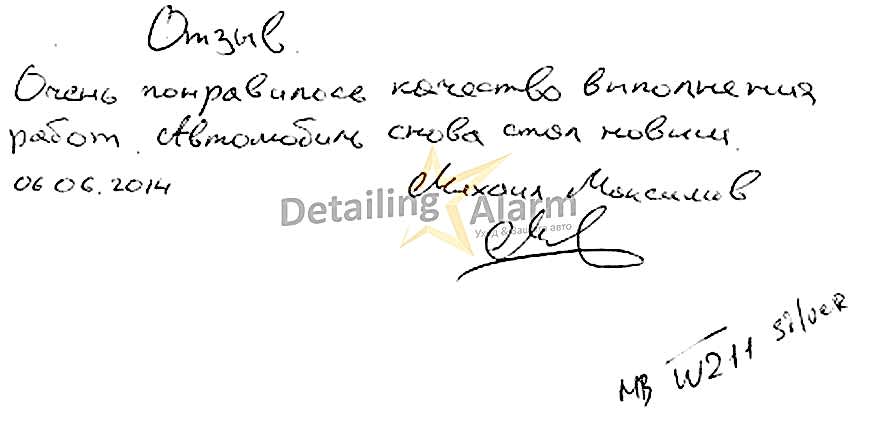 Отзыв.
Очень понравилось качество выполнения
работ. Автомобиль снова стал новым.
06.06.2014 Михаил Максимов
Detailing Alarm
Уход & Защита авто
MB W211 silver